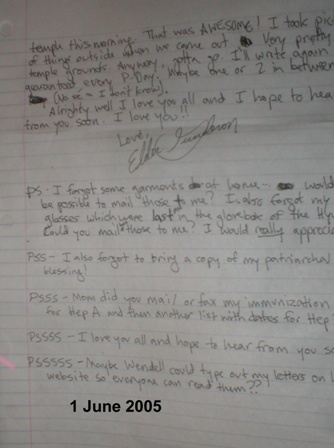 temple this morning. That was AWESOME! I took pic
of things outside when we came out Very pretty
temple grounds. Anyway, gotta go. I'll write again
guaranteed every P-Day. Maybe one or 2 in between
(No se = I don't know).
Alrighty well I love you all and I hope to hea
from you soon. I love you!!
Love,
Elder Gunderson
PS - I forgot some garments at home - would
be possible to mail those to me? I also forgot my
glasses which were last in the glovebox of the Hy
Could you mail those to me? I would really apprecia
PSS - I also forgot to bring a copy of my patriarchal
blessing!
PSSS - Mom did you mail or fax my immunization
for Hep A and then another list with dates for Hep
PSSSS - I love you all and hope to hear from you so
PSSSSS - Maybe Wendell could type out my letters on
website so everyone can read them??
1 June 2005